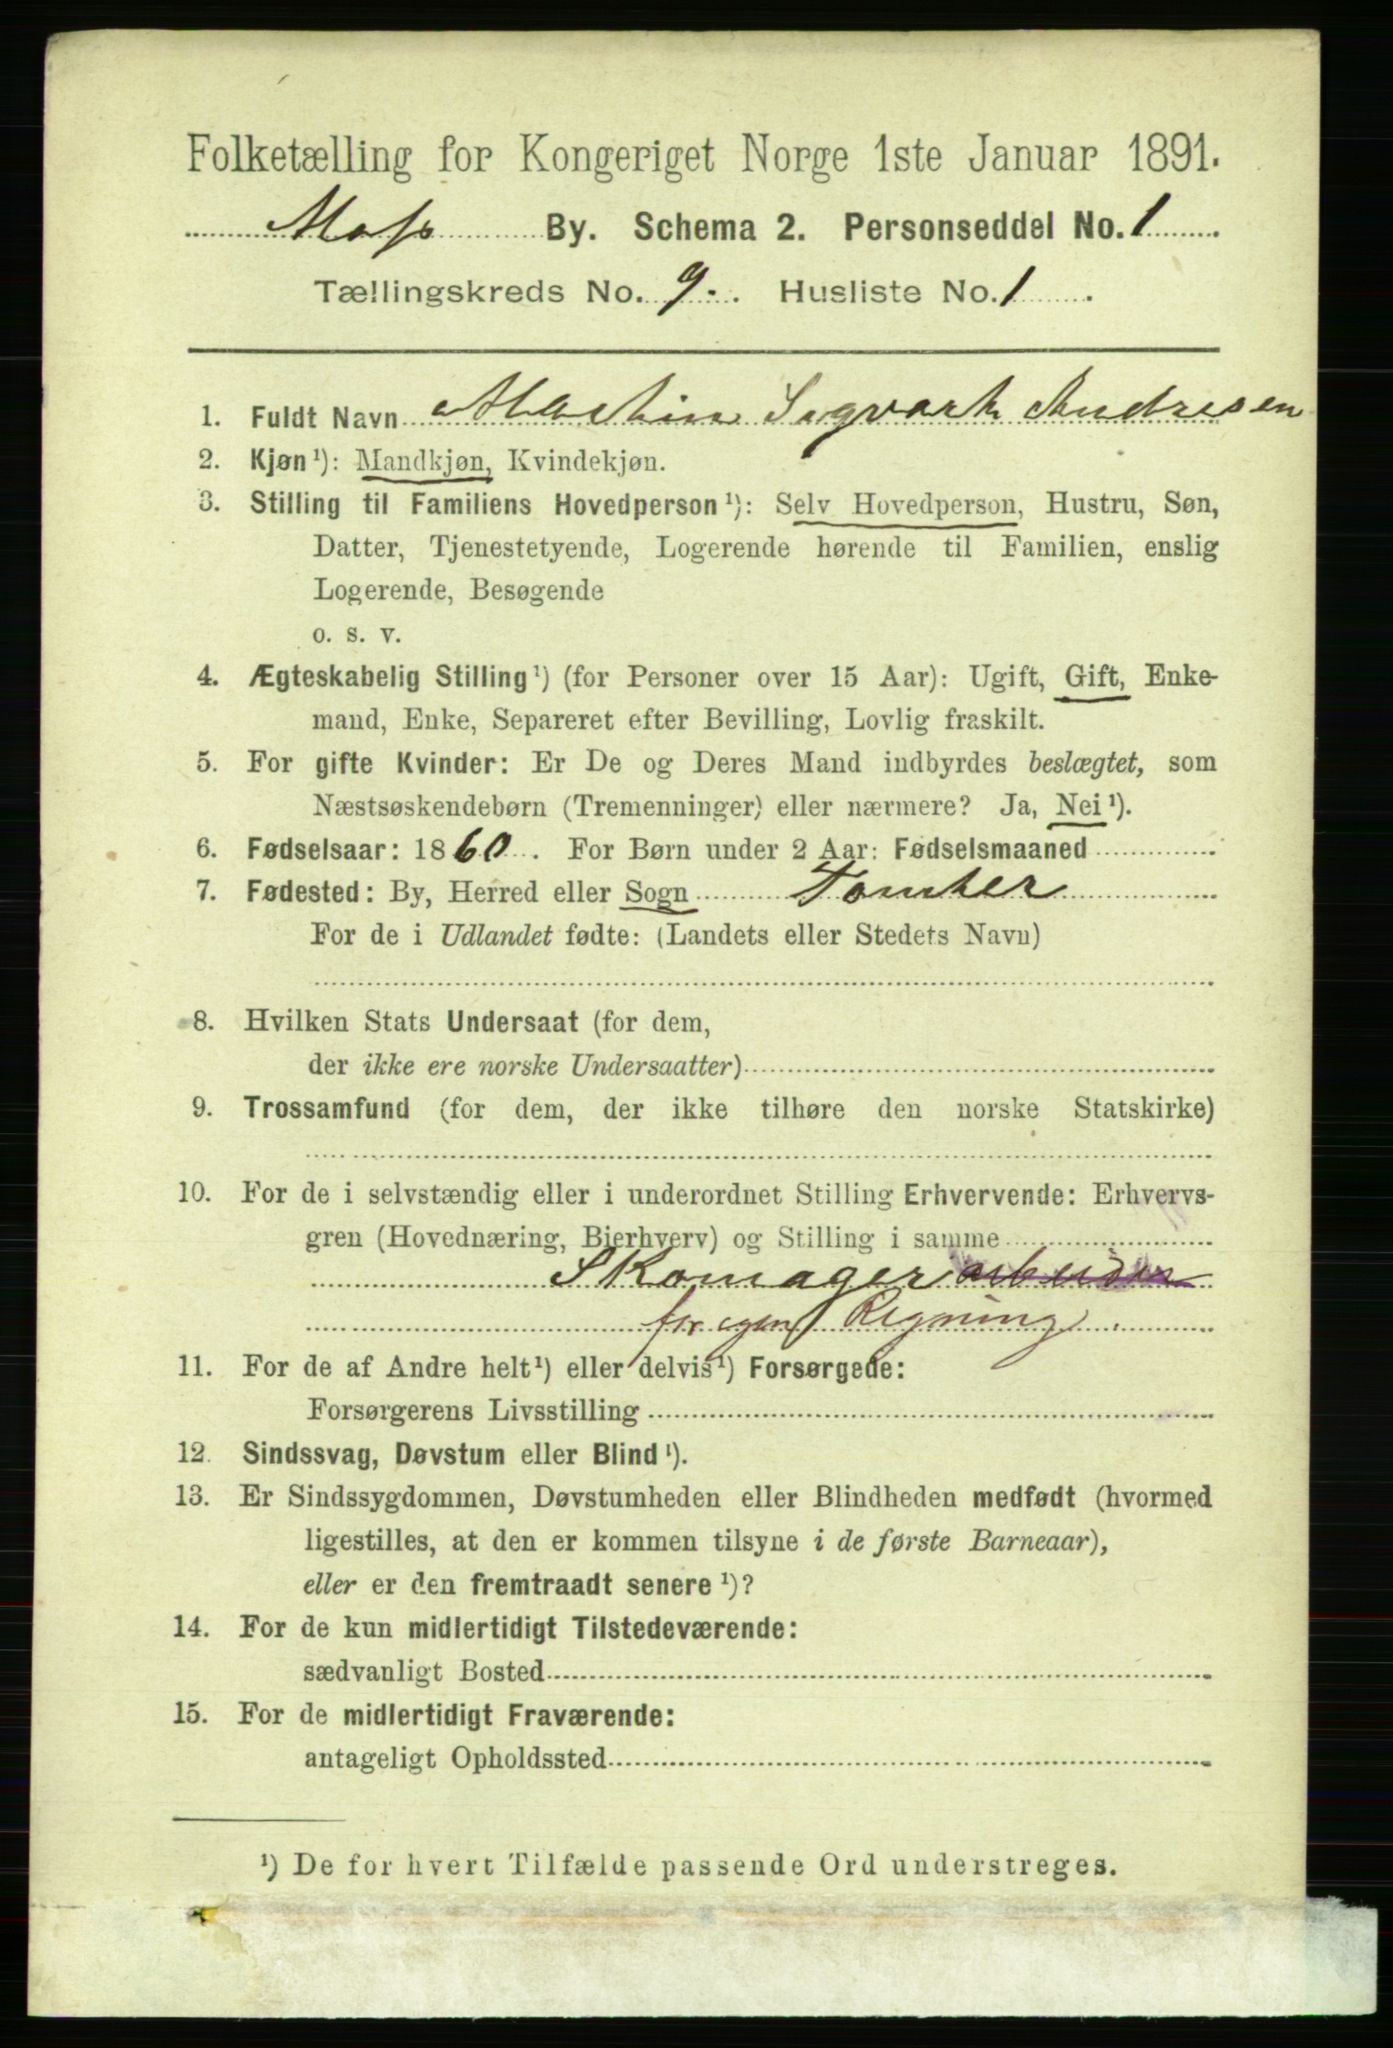 Folketælling for Kongeriget Norge 1ste Januar 1891.
Moss By. Schema 2. Personseddel No. 1
Tællingskreds No. 9. Husliste No. 1
1. Fuldt Navn Martin Sigvart Andresen
2. Kjøn ¹): Mandkjøn, Kvindekjøn.
3. Stilling til Familiens Hovedperson ¹): Selv Hovedperson, Hustru, Søn,
Datter, Tjenestetyende, Logerende hørende til Familien, enslig
Logerende, Besøgende
o. s. v.
4. Ægteskabelig Stilling ¹) (for Personer over 15 Aar): Ugift, Gift, Enke-
mand, Enke, Separeret efter Bevilling, Lovlig fraskilt.
5. For gifte Kvinder: Er De og Deres Mand indbyrdes beslægtet, som
Næstsøskendebørn (Tremenninger) eller nærmere? Ja, Nei ¹).
6. Fødselsaar: 1860. For Børn under 2 Aar: Fødselsmaaned
7. Fødested: By, Herred eller Sogn Tomter
For de i Udlandet fødte: (Landets eller Stedets Navn)
8. Hvilken Stats Undersaat (for dem,
der ikke ere norske Undersaatter)
9. Trossamfund (for dem, der ikke tilhøre den norske Statskirke)
10. For de i selvstændig eller i underordnet Stilling Erhvervende: Erhvervs-
gren (Hovednæring, Bierhverv) og Stilling i samme
Skomager arbeider
for egen Regning.
11. For de af Andre helt ¹) eller delvis ¹) Forsørgede:
Forsørgerens Livsstilling
12. Sindssvag, Døvstum eller Blind ¹).
13. Er Sindssygdommen, Døvstumheden eller Blindheden medfødt (hvormed
ligestilles, at den er kommen tilsyne i de første Barneaar),
eller er den fremtraadt senere ¹)?
14. For de kun midlertidigt Tilstedeværende:
sædvanligt Bosted
15. For de midlertidigt Fraværende:
antageligt Opholdssted
¹) De for hvert Tilfælde passende Ord understreges.